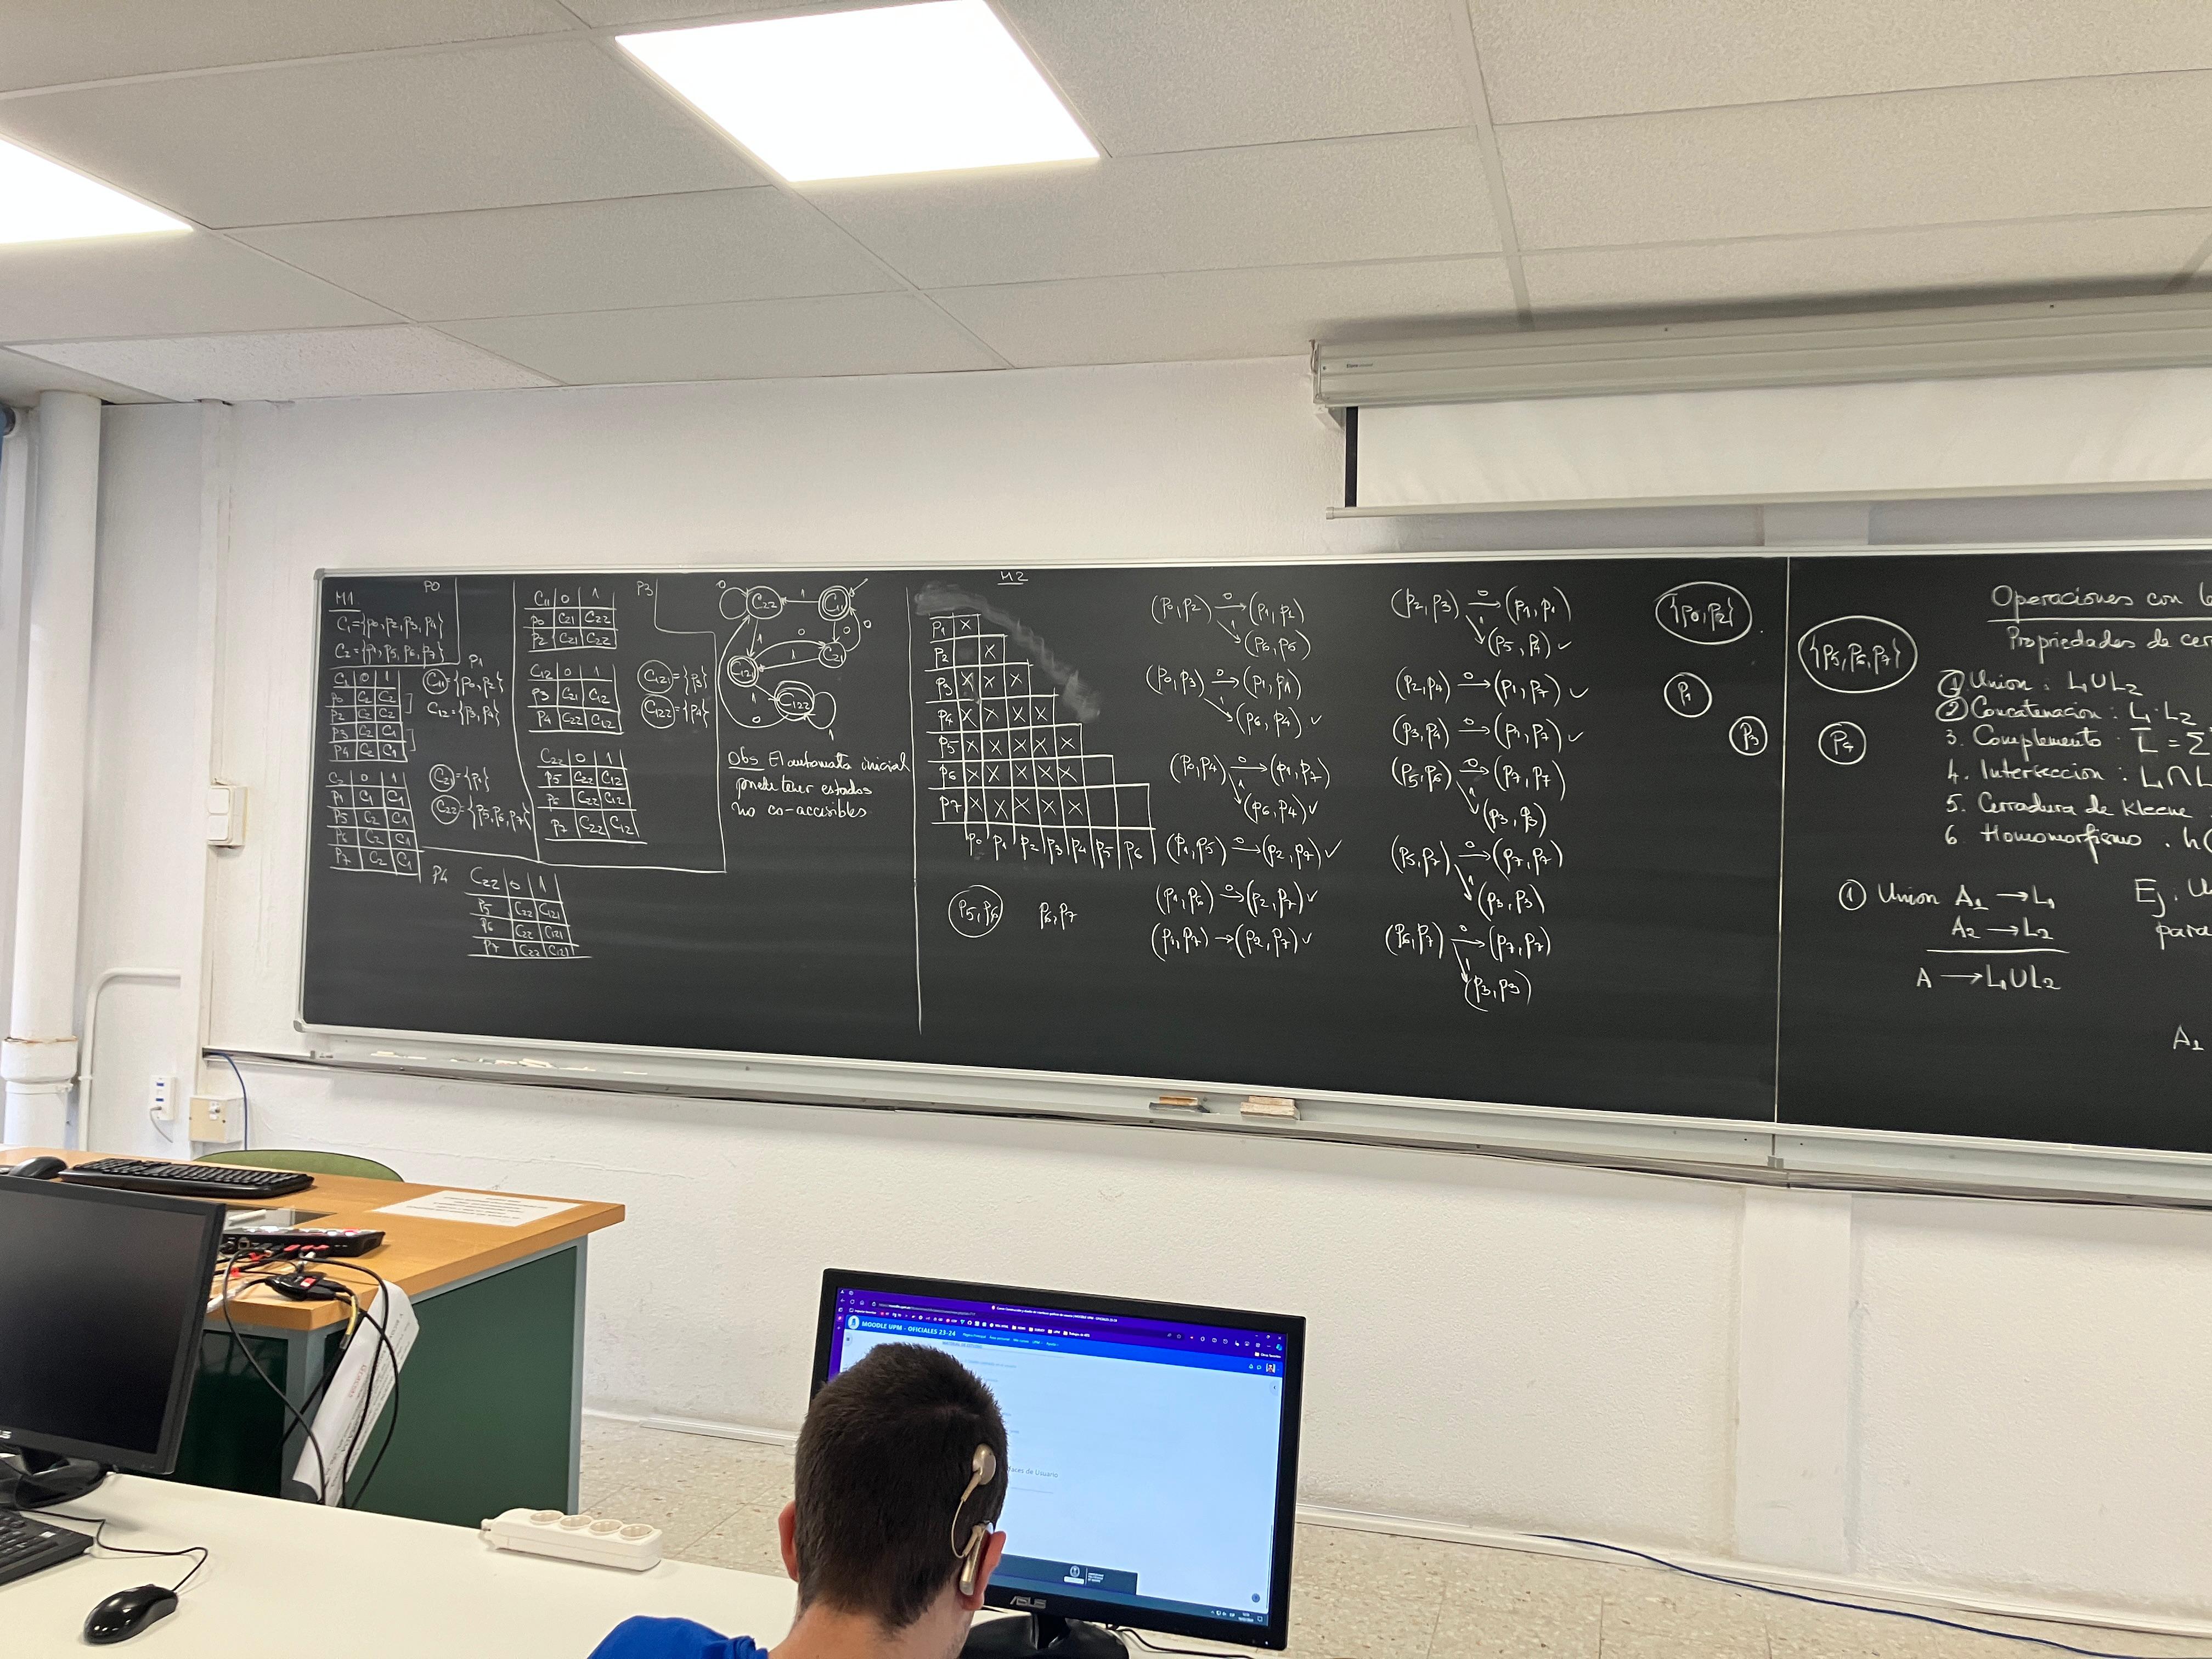 M1
P0
C₁={p0,p2,p3,p4}
C₂={p1,p5,p6,p7}
P1
C₁ 0 1
p0 C₂ C₂
p2 C₂ C₂
p3 C₂ C₁
p4 C₂ C₁
C₁₁={p0,p2}
C₁₂={p3,p4}
C₂ 0 1
p1 C₁ C₁
p5 C₂ C₁
p6 C₂ C₁
p7 C₂ C₁
C₂₁={p1}
C₂₂={p5,p6,p7}
C₁₁ 0 1
p0 C₂₁ C₂₂
p2 C₂₁ C₂₂
C₁₂ 0 1
p3 C₂₁ C₁₂
p4 C₂₂ C₁₂
C₂₂ 0 1
p5 C₂₂ C₁₂
p6 C₂₂ C₁₂
p7 C₂₂ C₁₂
P3
C₁₂₁={p3}
C₁₂₂={p4}
P4
C₂₂ 0 1
p5 C₂₂ C₁₂₁
p6 C₂₂ C₁₂₁
p7 C₂₂ C₁₂₁
0 C₂₂ 1
1 0 0
C₂₁
1
C₁₂₂
0 1
Obs El automata inicial
puede tener estados
no co-accesibles
M2
p1 X
p2 X
p3 X X X
p4 X X X X
p5 X X X X X
p6 X X X X X
p7 X X X X X
p0 p1 p2 p3 p4 p5 p6
p5,p6
p6,p7
(p0,p2) 0→ (p1,p1)
1↘ (p6,p6)
(p0,p3) 0→ (p1,p1)
1↘ (p6,p4) ✓
(p0,p4) 0→ (p1,p7)
1↘ (p6,p4) ✓
(p1,p5) 0→ (p2,p7) ✓
(p1,p6) 0→ (p2,p7) ✓
(p1,p7) → (p2,p7) ✓
(p2,p3) 0→ (p1,p1)
1↘ (p5,p4) ✓
(p2,p4) 0→ (p1,p7) ✓
(p3,p4) 0→ (p1,p7) ✓
(p5,p6) 0→ (p7,p7)
1↘ (p3,p3)
(p5,p7) 0→ (p7,p7)
1↘ (p3,p3)
(p6,p7) 0→ (p7,p7)
1↘ (p3,p3)
{p0,p2}
p1
p3
{p5,p6,p7}
p4
Operaciones con
Propiedades de
① Union : L₁UL₂
② Concatenacion : L₁·L₂
3. Complemento : L̅ = Σ
4. Interseccion : L₁∩L
5. Cerradura de Kleene
6. Homomorfismo . h(
① Union A₁ → L₁
A₂ → L₂
A → L₁UL₂
Ej.
para
A₁
MOODLE UPM - OFICIALES 23-24
faces de Usuario
ASUS